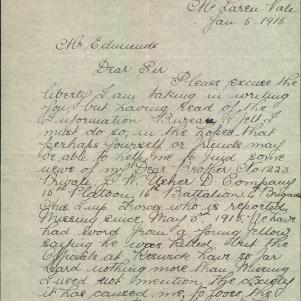 McLaren Vale
Jan 5. 1916
Mr Edmunds
Dear Sir
Please excuse the
liberty I am taking in writing
you, but having read of the
Information Bureau I felt I
must do so, in the hopes that
perhaps yourself or friends may
be able to help me to find some
news of my Dear Brother No 1223
Private D Company
15 Platoon, 16 Battalion 4 Brigade
Aus Imp Force who is reported
Missing since, May 3rd 1915. We have
had word from a young fellow
saying he was killed, but the
Officials at Keswick have so far
heard nothing more than Missing
I need not mention the anxiety
it has caused me, to lose the